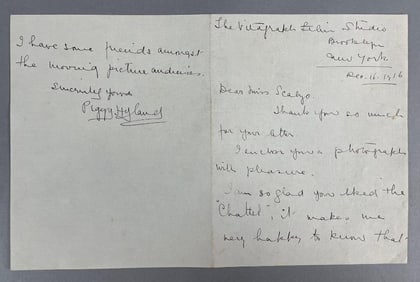 The Vitagraph Film Studio
Brooklyn
New York
Dec. 16. 1916
Dear Miss
Thank you so much
for your letter.
I enclose you a photograph
with pleasure.
I am so glad you liked the
"Chattel", it makes me
very happy to know that
I have some friends amongst
the moving picture audiences.
Sincerely yours
Peggy Hyland